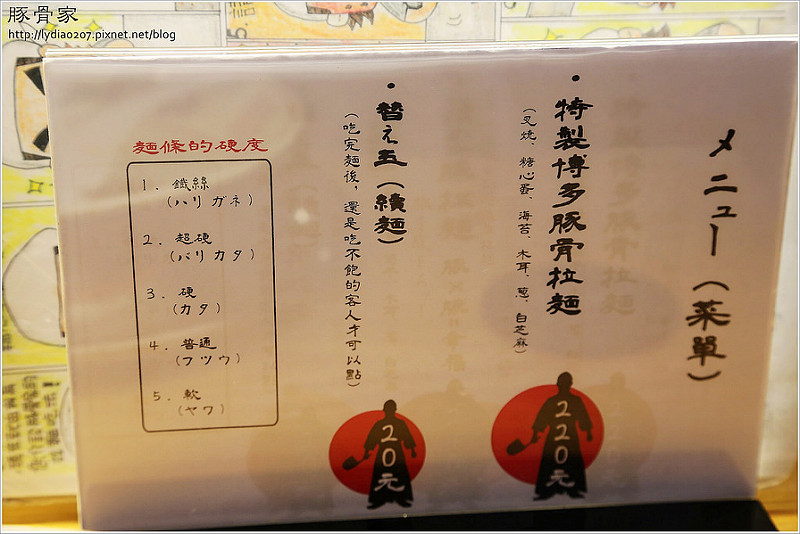 豚骨家
http://lydia0207.pixnet.net/blog
メニュー（菜單）
・特製博多豚骨拉麵
（叉燒、糖心蛋、海苔、木耳、蔥、白芝麻）
220元
・替え玉（續麵）
（吃完麵後，還是吃不飽的客人才可以點）
20元
麵條的硬度
1. 鐵絲
（ハリガネ）
2. 超硬
（バリカタ）
3. 硬
（カタ）
4. 普通
（フツウ）
5. 軟
（ヤワ）